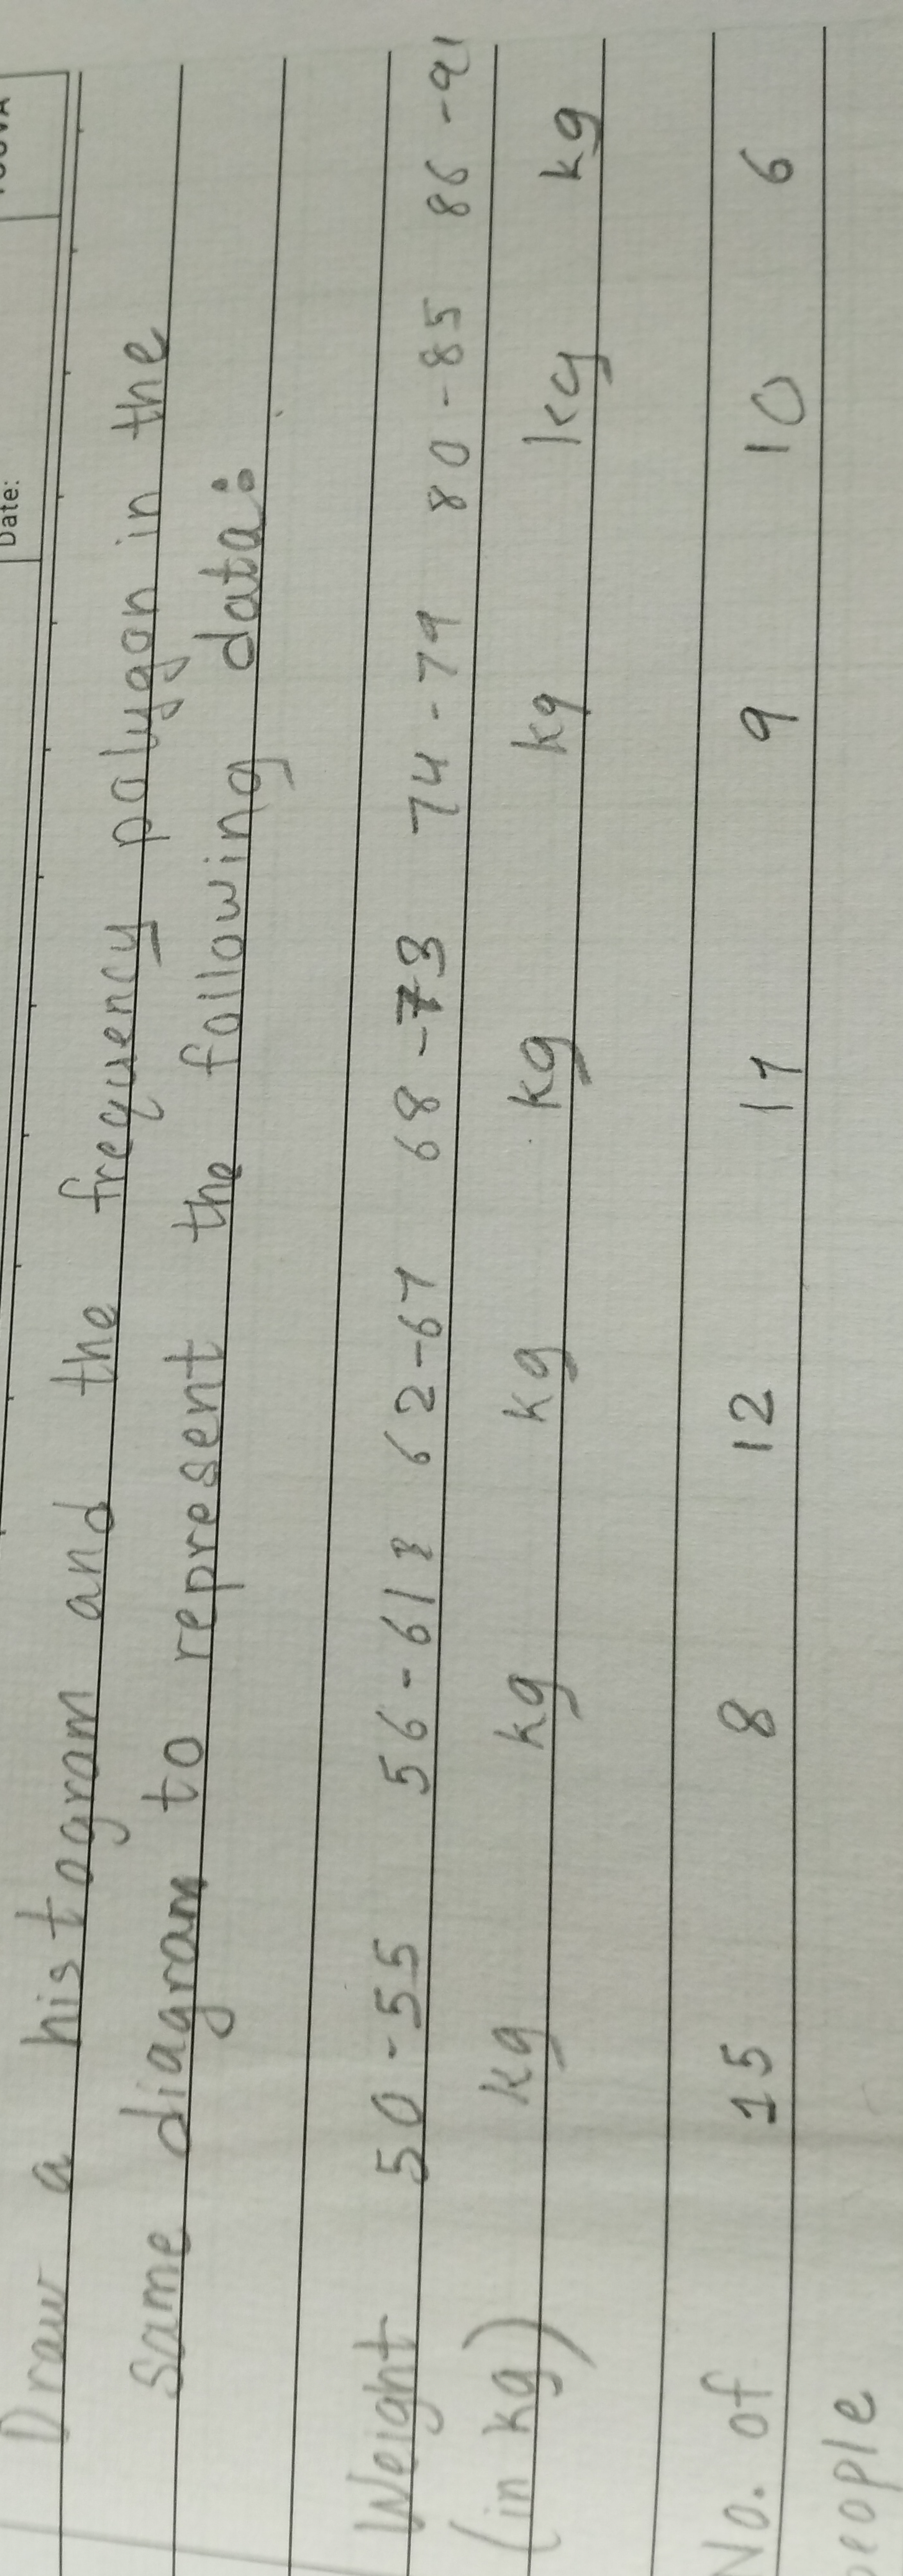 Date:
Draw a histogram and the frequency polygon in the
same diagram to represent the following data:
Weight 50-55 56-61 62-67 68-73 74-79 80-85 86-91
(in kg) kg kg kg kg kg kg kg
No. of 15 8 12 17 9 10 6
people